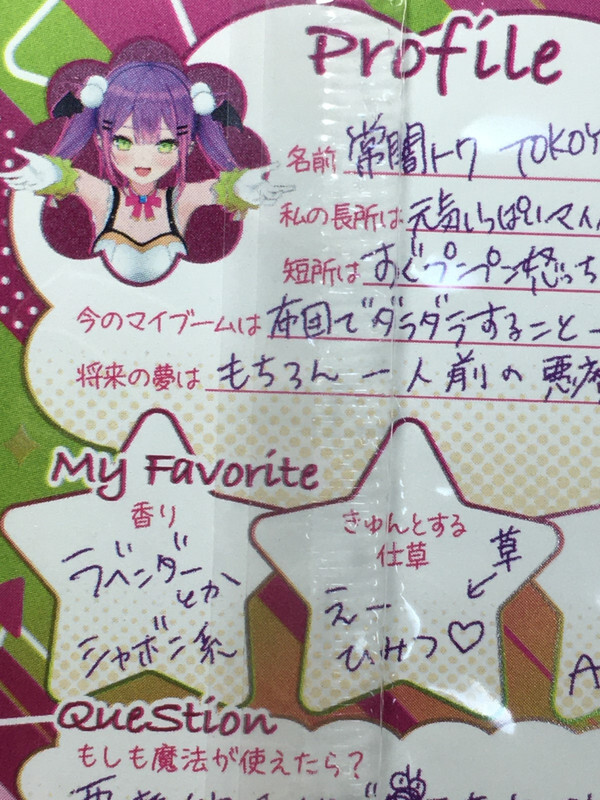 Profile
名前 常闇トワ TOKOY
私の長所は 元気いっぱいマイ
短所は すぐプンプン怒っち
今のマイブームは 布団でダラダラすること
将来の夢は もちろん 一人前の悪
My Favorite
香り
ラベンダー
とか
シャボン系
きゅんとする
仕草
草
えー
ひみつ♡
A
QueStion
もしも魔法が使えたら?